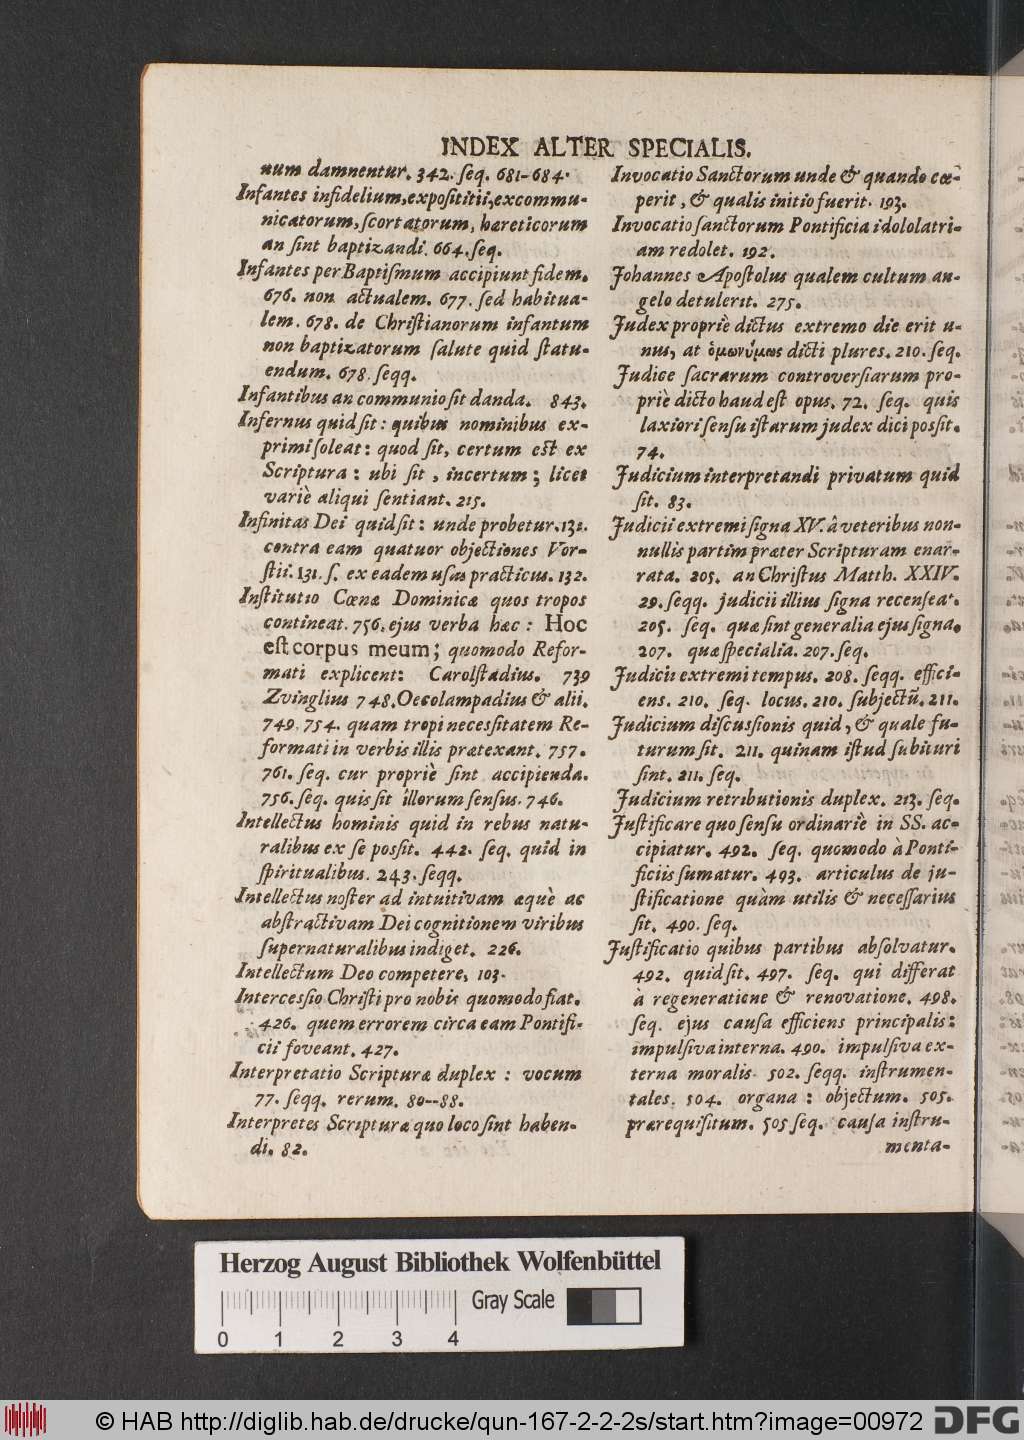 INDEX ALTER SPECIALIS.
num damnentur. 342. ſeq. 681-684.
Infantes infidelium, expoſititii, excommu-
nicatorum, ſcortatorum, hæreticorum
an ſint baptizandi. 664. ſeq.
Infantes per Baptiſmum accipiunt fidem.
676. non actualem. 677. ſed habitua-
lem. 678. de Chriſtianorum infantum
non baptizatorum ſalute quid ſtatu-
endum. 678. ſeqq.
Infantibus an communio ſit danda. 843.
Infernus quid ſit: quibus nominibus ex-
primi ſoleat: quod ſit, certum eſt ex
Scriptura: ubi ſit, incertum; licet
variè aliqui ſentiant. 215.
Infinitas Dei quid ſit: unde probetur. 131.
contra eam quatuor objectiones Vor-
ſtii. 131. ſ. ex eadem uſus practicus. 132.
Inſtitutio Cœnæ Dominicæ quos tropos
contineat. 756. ejus verba hæc: Hoc
eſt corpus meum; quomodo Refor-
mati explicent: Carolſtadius. 739
Zvinglius 748. Oecolampadius & alii.
749. 754. quam tropi neceſſitatem Re-
formati in verbis illis prætexant. 757.
761. ſeq. cur propriè ſint accipienda.
756. ſeq. quis ſit illorum ſenſus. 746.
Intellectus hominis quid in rebus natu-
ralibus ex ſe poſſit. 442. ſeq. quid in
ſpiritualibus. 243. ſeqq.
Intellectus noſter ad intuitivam æquè ac
abſtractivam Dei cognitionem viribus
ſupernaturalibus indiget. 226.
Intellectum Deo competere, 103.
Interceſſio Chriſti pro nobis quomodo fiat.
426. quem errorem circa eam Pontifi-
cii foveant. 427.
Interpretatio Scripturæ duplex: vocum
77. ſeqq. rerum. 80--88.
Interpretes Scripturæ quo loco ſint haben-
di. 82.
Invocatio Sanctorum unde & quando cœ-
perit, & qualis initio fuerit. 193.
Invocatio ſanctorum Pontificia idololatri-
am redolet. 192.
Johannes Apoſtolus qualem cultum an-
gelo detulerit. 275.
Judex propriè dictus extremo die erit u-
nus, at ὁμωνύμως dicti plures. 210. ſeq.
Judice ſacrarum controverſiarum pro-
priè dicto haud eſt opus. 72. ſeq. quis
laxiori ſenſu iſtarum judex dici poſſit.
74.
Judicium interpretandi privatum quid
ſit. 83.
Judicii extremi ſigna XV. â veteribus non-
nullis partim præter Scripturam enar-
rata. 205. an Chriſtus Matth. XXIV.
29. ſeqq. judicii illius ſigna recenſeat.
205. ſeq. quæ ſint generalia ejus ſigna.
207. quæ ſpecialia. 207. ſeq.
Judicii extremi tempus. 208. ſeqq. effici-
ens. 210. ſeq. locus. 210. ſubjectũ. 211.
Judicium diſcuſſionis quid, & quale fu-
turum ſit. 211. quinam iſtud ſubituri
ſint. 211. ſeq.
Judicium retributionis duplex. 213. ſeq.
Juſtificare quo ſenſu ordinariè in SS. ac-
cipiatur. 492. ſeq. quomodo à Ponti-
ficiis ſumatur. 493. articulus de ju-
ſtificatione quàm utilis & neceſſarius
ſit. 490. ſeq.
Juſtificatio quibus partibus abſolvatur.
492. quid ſit. 497. ſeq. qui differat
à regeneratione & renovatione. 498.
ſeq. ejus cauſa efficiens principalis:
impulſiva interna. 490. impulſiva ex-
terna moralis 502. ſeqq. inſtrumen-
tales. 504. organa: objectum. 505.
prærequiſitum. 505 ſeq. cauſa inſtru-
menta-
Herzog August Bibliothek Wolfenbüttel
Gray Scale
0 1 2 3 4
© HAB http://diglib.hab.de/drucke/qun-167-2-2-2s/start.htm?image=00972
DFG